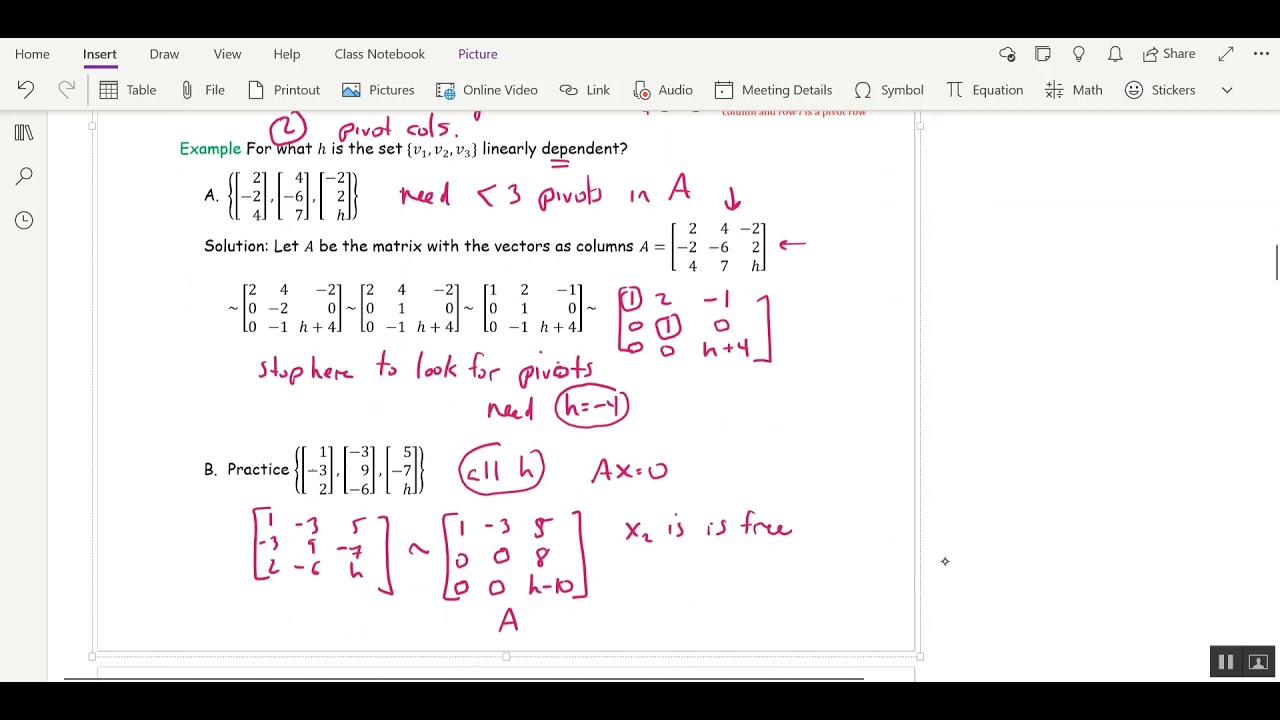 Home Insert Draw View Help Class Notebook Picture Share
Table File Printout Pictures Online Video Link Audio Meeting Details Symbol Equation Math Stickers
column and row i is a pivot row
② pivot cols.
Example For what h is the set {v₁, v₂, v₃} linearly dependent?
A. {[2 −2 4], [4 −6 7], [−2 2 h]} need < 3 pivots in A ↓
Solution: Let A be the matrix with the vectors as columns A = [2 4 −2; −2 −6 2; 4 7 h] ←
~ [2 4 −2; 0 −2 0; 0 −1 h + 4] ~ [2 4 −2; 0 1 0; 0 −1 h + 4] ~ [1 2 −1; 0 1 0; 0 −1 h + 4] ~ [1 2 −1; 0 1 0; 0 0 h+4]
stop here to look for pivots
need h=−4
B. Practice {[1 −3 2], [−3 9 −6], [5 −7 h]} all h Ax=0
[1 −3 5; −3 9 −7; 2 −6 h] ~ [1 −3 5; 0 0 8; 0 0 h−10] x₂ is is free
A